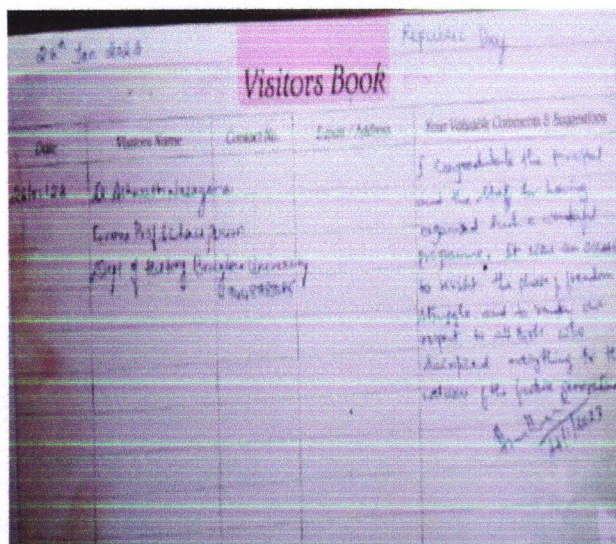 26th Jan 2023
Republic Day
Visitors Book
Date
Visitors Name
Contact No.
Email / Address
Your Valuable Comments & Suggestions
Former Prof. & Chair Person
Dept of History Bangalore University
I Congratulate the principal
and the staff for having
organised such a wonderful
programme. It was an
to revisit the phase of freedom
struggle and to render our
respect to all those who
everything for the
welfare of the future generation